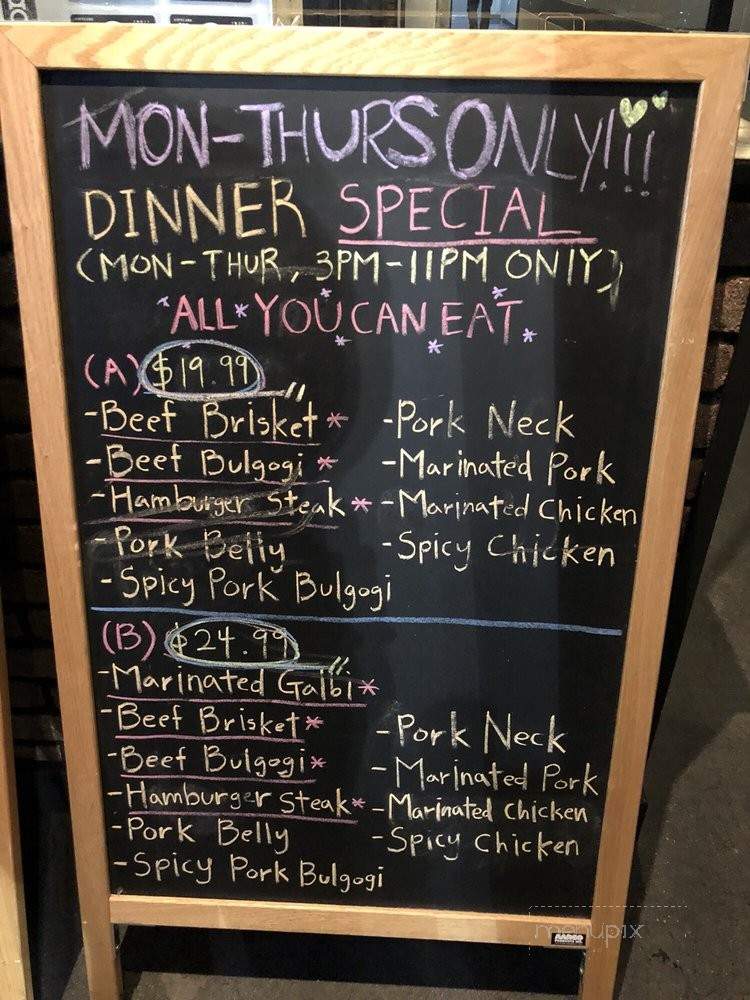 MON-THURS ONLY!!!
DINNER SPECIAL
(MON-THUR, 3PM-11PM ONLY)
*ALL*YOU CAN EAT*
(A) $19.99
-Beef Brisket*
-Beef Bulgogi*
-Hamburger Steak*
-Pork Belly
-Spicy Pork Bulgogi
-Pork Neck
-Marinated Pork
-Marinated Chicken
-Spicy Chicken
(B) $24.99
-Marinated Galbi*
-Beef Brisket*
-Beef Bulgogi*
-Hamburger Steak*
-Pork Belly
-Spicy Pork Bulgogi
-Pork Neck
-Marinated Pork
-Marinated Chicken
-Spicy Chicken
AARCO
menupix